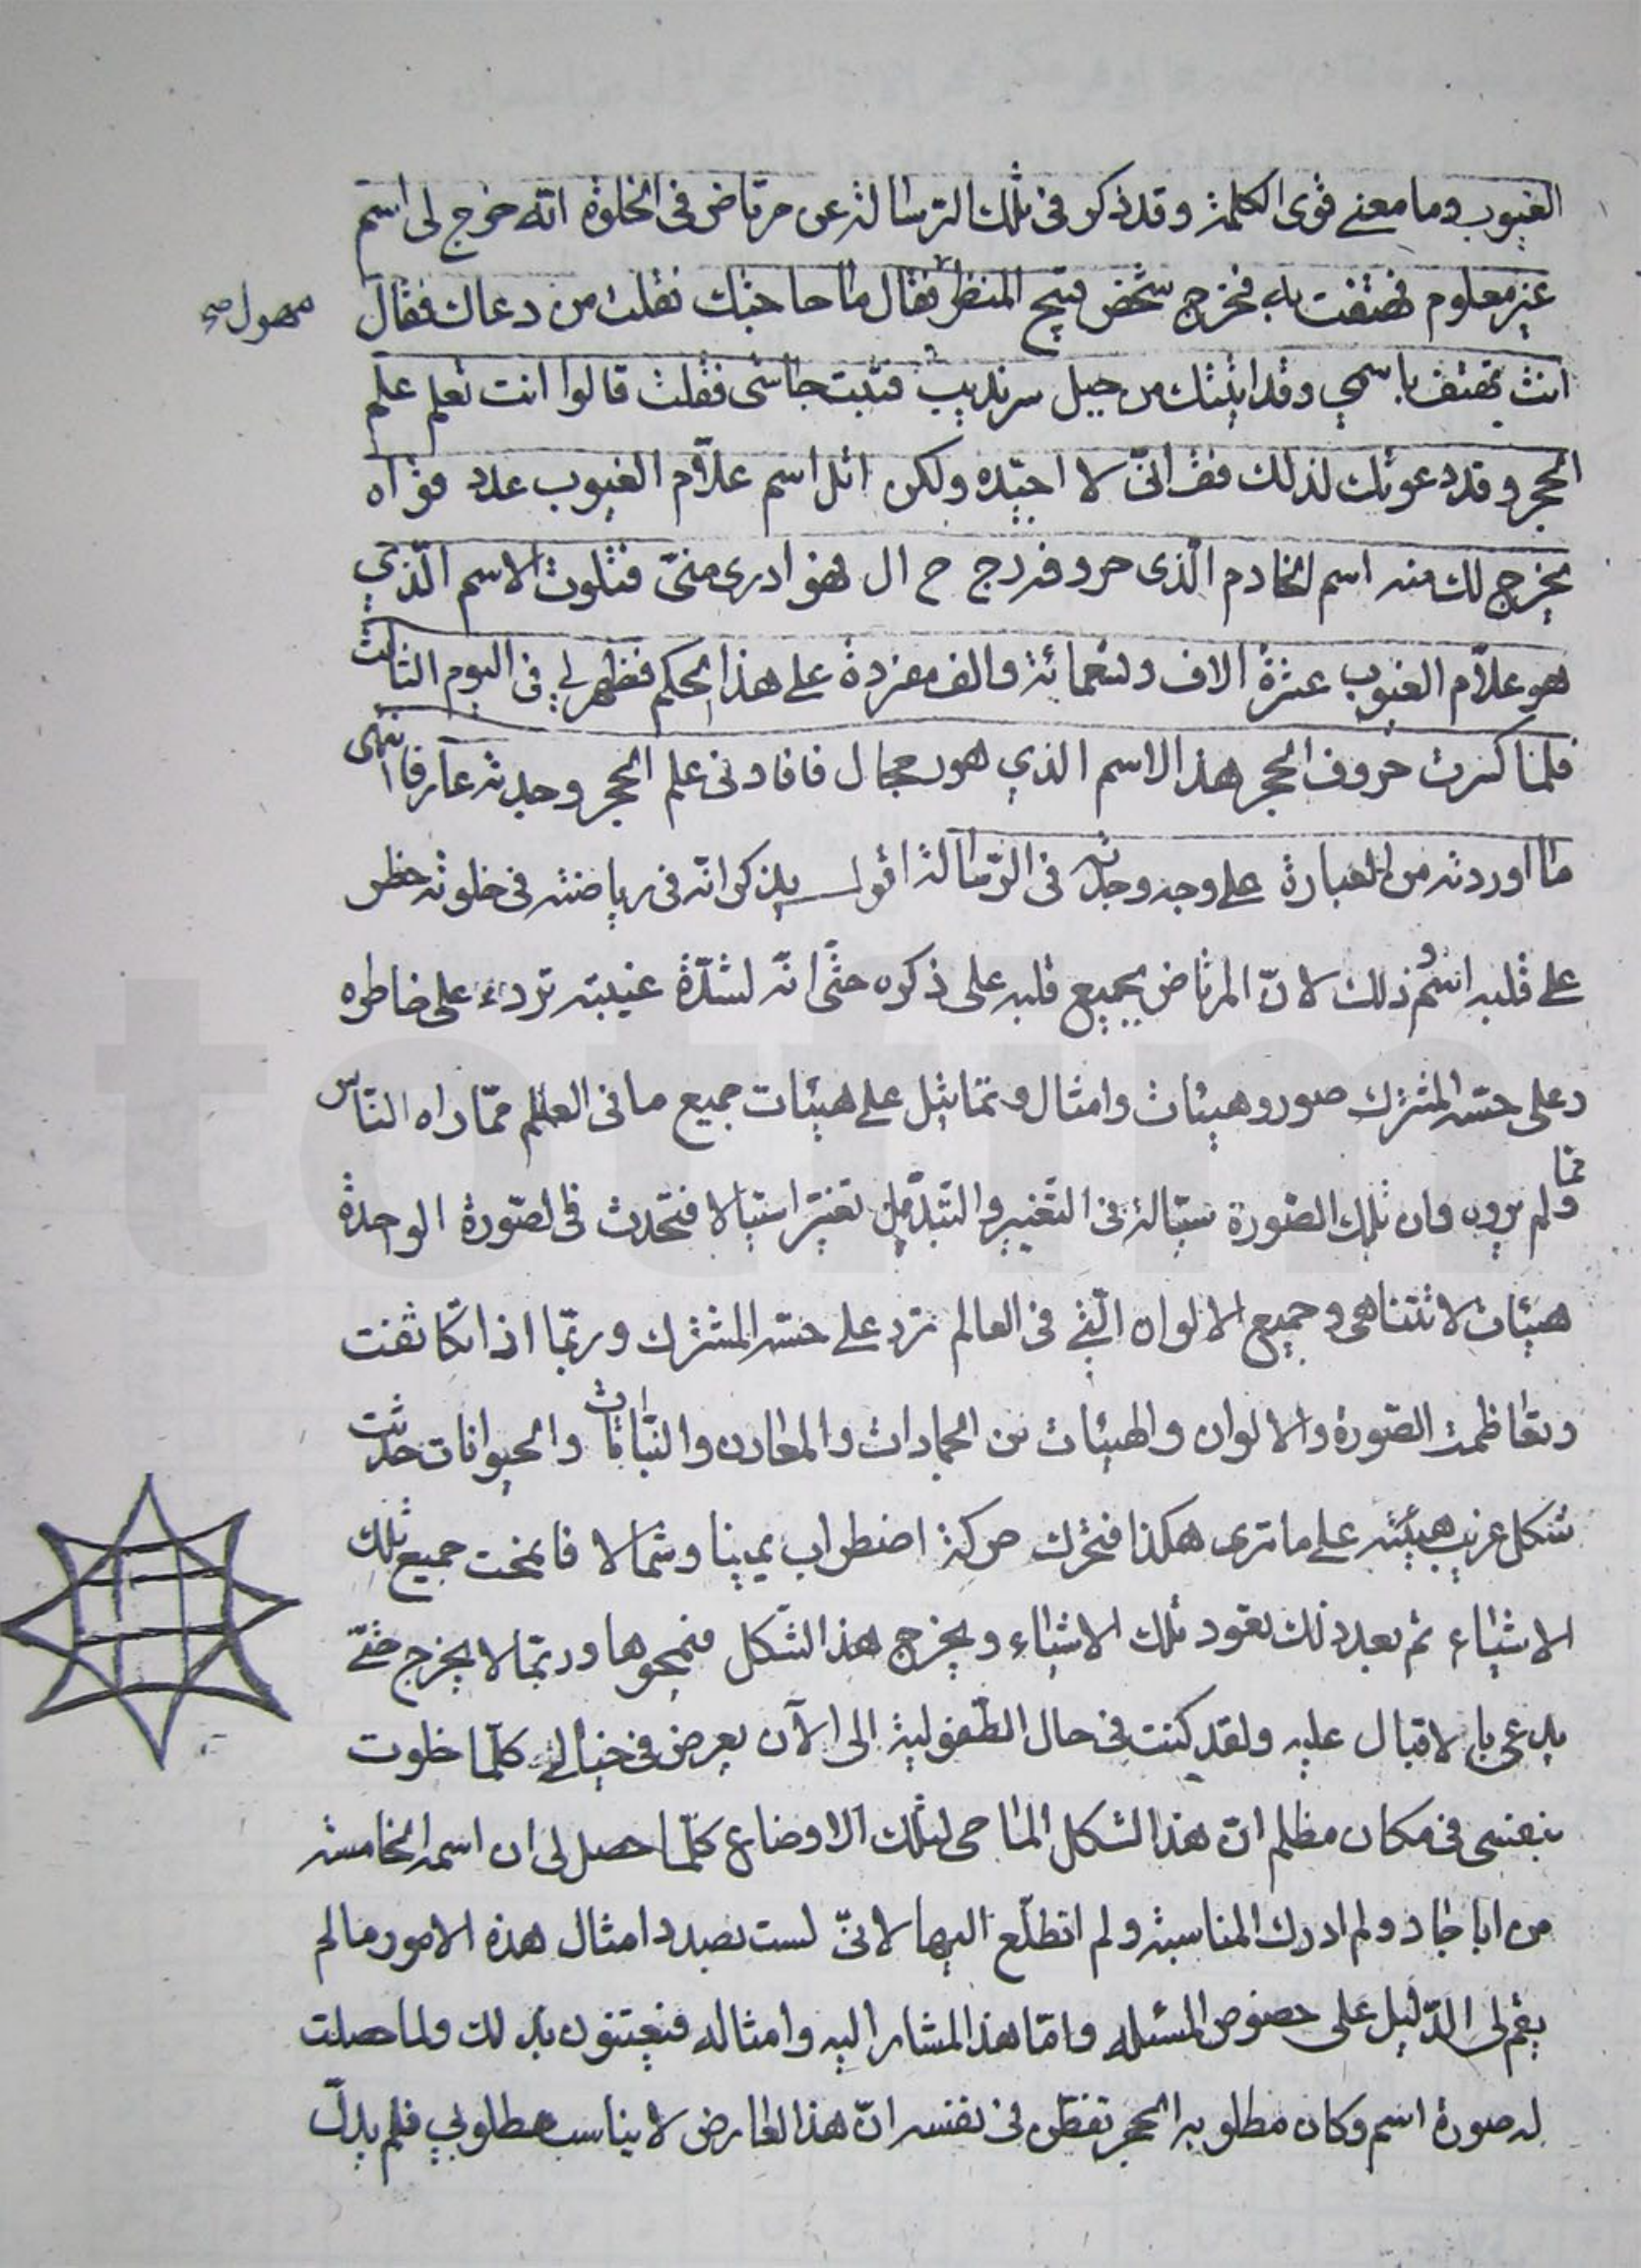 الغيوب وما معنى قوى الكلمة وقد ذكر فى تلك الرسالة عن مرتاض فى الخلوة انّه خرج لى اسم
غير معلوم فهتفت به فخرج شخص قبيح المنظر فقال ما حاجتك فقلت من دعاك فقال
انت تهتف باسمي وقد اتيتك من جبل سرنديب فثبت جاشى فقلت قالوا انت تعلم علم
الحجر وقد دعوتك لذلك فقـ انّى لا اجيده ولكن اتل اسم علاّم الغيوب عدد قواه
يخرج لك منه اسم الخادم الّذى حروفه ر ج ح ال فهو ادرى منّى فتلوت الاسم الّذي
هو علاّم الغيوب عشرة الاف وتسعمائة والف مفردة على هذا الحكم فظهر لي فى اليوم الثالث
فلمّا كسرت حروف الحجر هذا الاسم الذي هو رحجال فافادنى علم الحجر وجدته عارفا انتهى
ما اوردته من العبارة على وجه وجدته فى الرّسالة اقول يذكر انّه فى رياضته فى خلوته خطر
على قلبه اسم وذلك لانّ المرتاض يجمع قلبه على ذكره حتّى انّه لشدّة غيبته ترد على خاطره
وعلى حسّه المشترك صور وهيئات وامثال وتماثيل على هيئات جميع ما فى العالم ممّا راه النّاس
وممّا لم يروه وان تلك الصّورة سيّالة فى التّغيير والتبدّل تغيّرا سيّالا فتحدث فى الصّورة الواحدة
هيئات لا تتناهى وجميع الالوان الّتي فى العالم ترد على حسّه المشترك وربّما اذا تكاثفت
وتعاظمت الصّورة والالوان والهيئات من الجمادات والمعادن والنّباتات والحيوانات حدثت
شكل غريب هيئته على ما ترى هكذا فتحرك حركة اضطراب يمينا وشمالا فانمحت جميع تلك
الاشياء ثم بعد ذلك تعود تلك الاشياء ويخرج هذا الشّكل فمحوها وربّما لا يخرج حتّى
يدعى بالاقبال عليه ولقد كنت فى حال الطّفوليّة الى الآن يعرض فى خيالي كلّما خلوت
بنفسى فى مكان مظلم انّ هذا الشكل الماحى لتلك الاوضاع كلّما حصل لى ان اسمه الخامسة
من اباجاد ولم ادرك المناسبة ولم اتطلّع اليها لانّى لست بصدد امثال هذه الامور ما لم
يقم لى الدّليل على خصوص المسئله وامّا هذا المشار اليه وامثاله فيعتنون بذلك ولما حصلت
له صورة اسم وكان مطلوبه الحجر تفطّن فى نفسه انّ هذا العارض لا يناسب مطلوبي فلم يدلّ